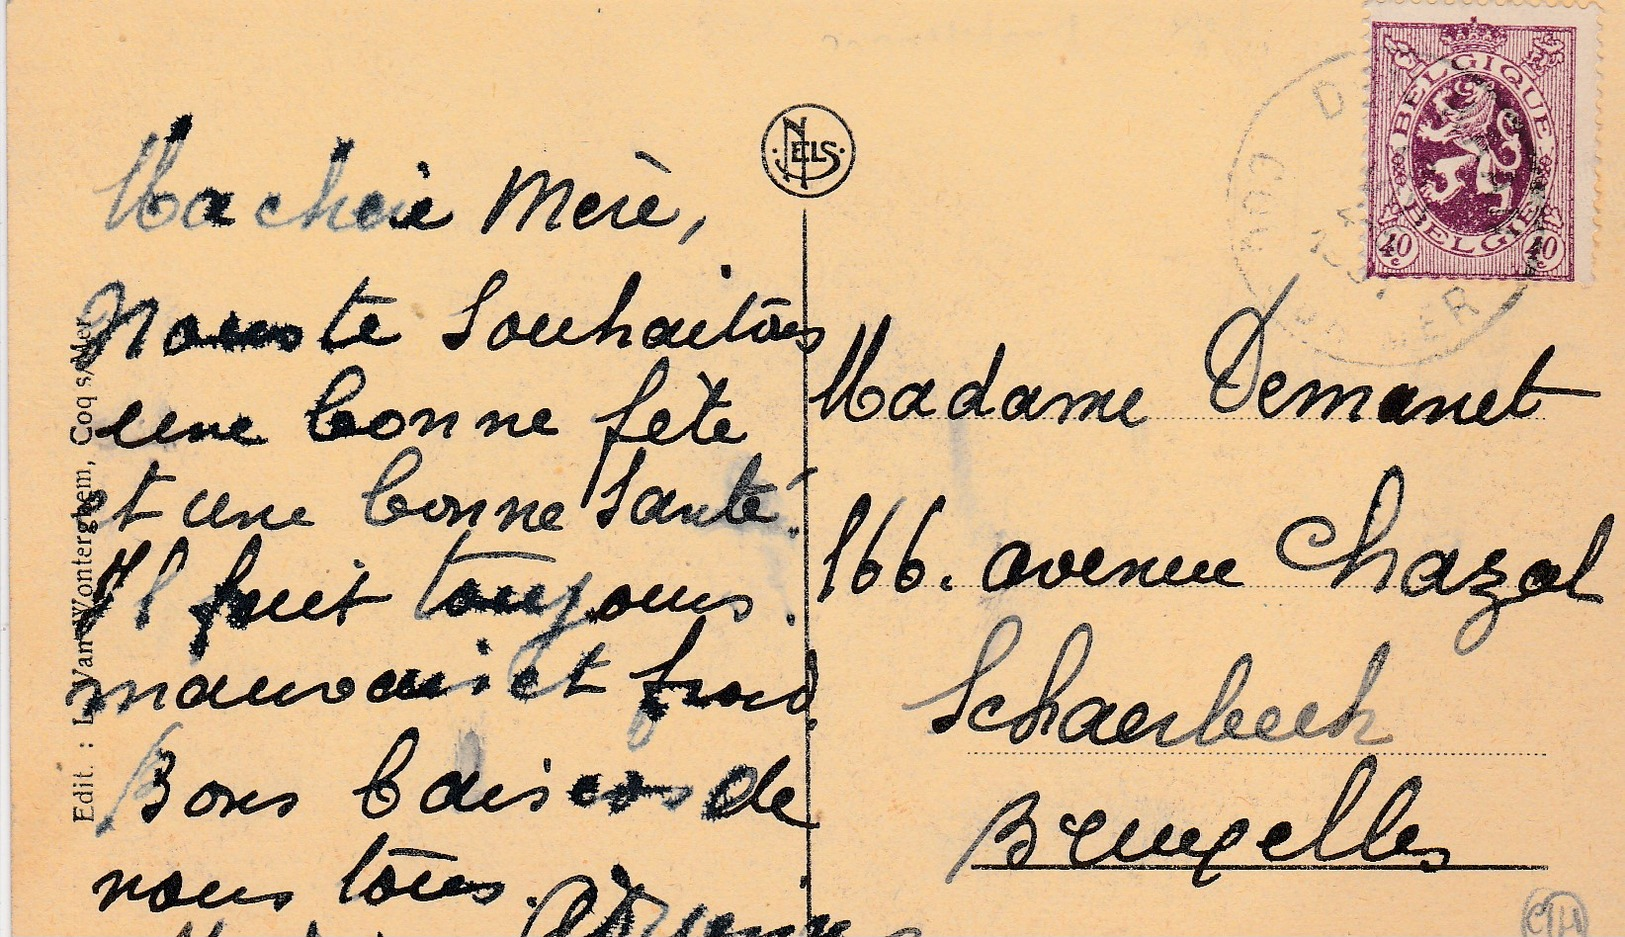 Ma chère Mère,
Nous te souhaitons
une bonne fête
et une bonne santé.
Il fait toujours
mauvais et froid.
Bons baisers de
nous tous.
Edit. : L. Van Wonterghem, Coq s/Mer
NELS
BELGIQUE
BELGIË
40c 40c
COQ
MER
Madame Demanet
166. avenue Chazal
Schaerbeek
Bruxelles